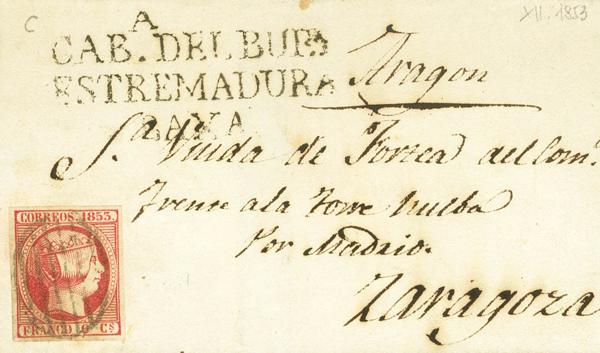 C
XII. 1853
A
CAB. DEL BUEY
ESTREMADURA
BAXA
Aragon
S.ª Viuda de Forcea del Com.º
Frente a la Torre nueba
Por Madrid.
Zaragoza
CORREOS. 1853.
FRANCO 6 C.S